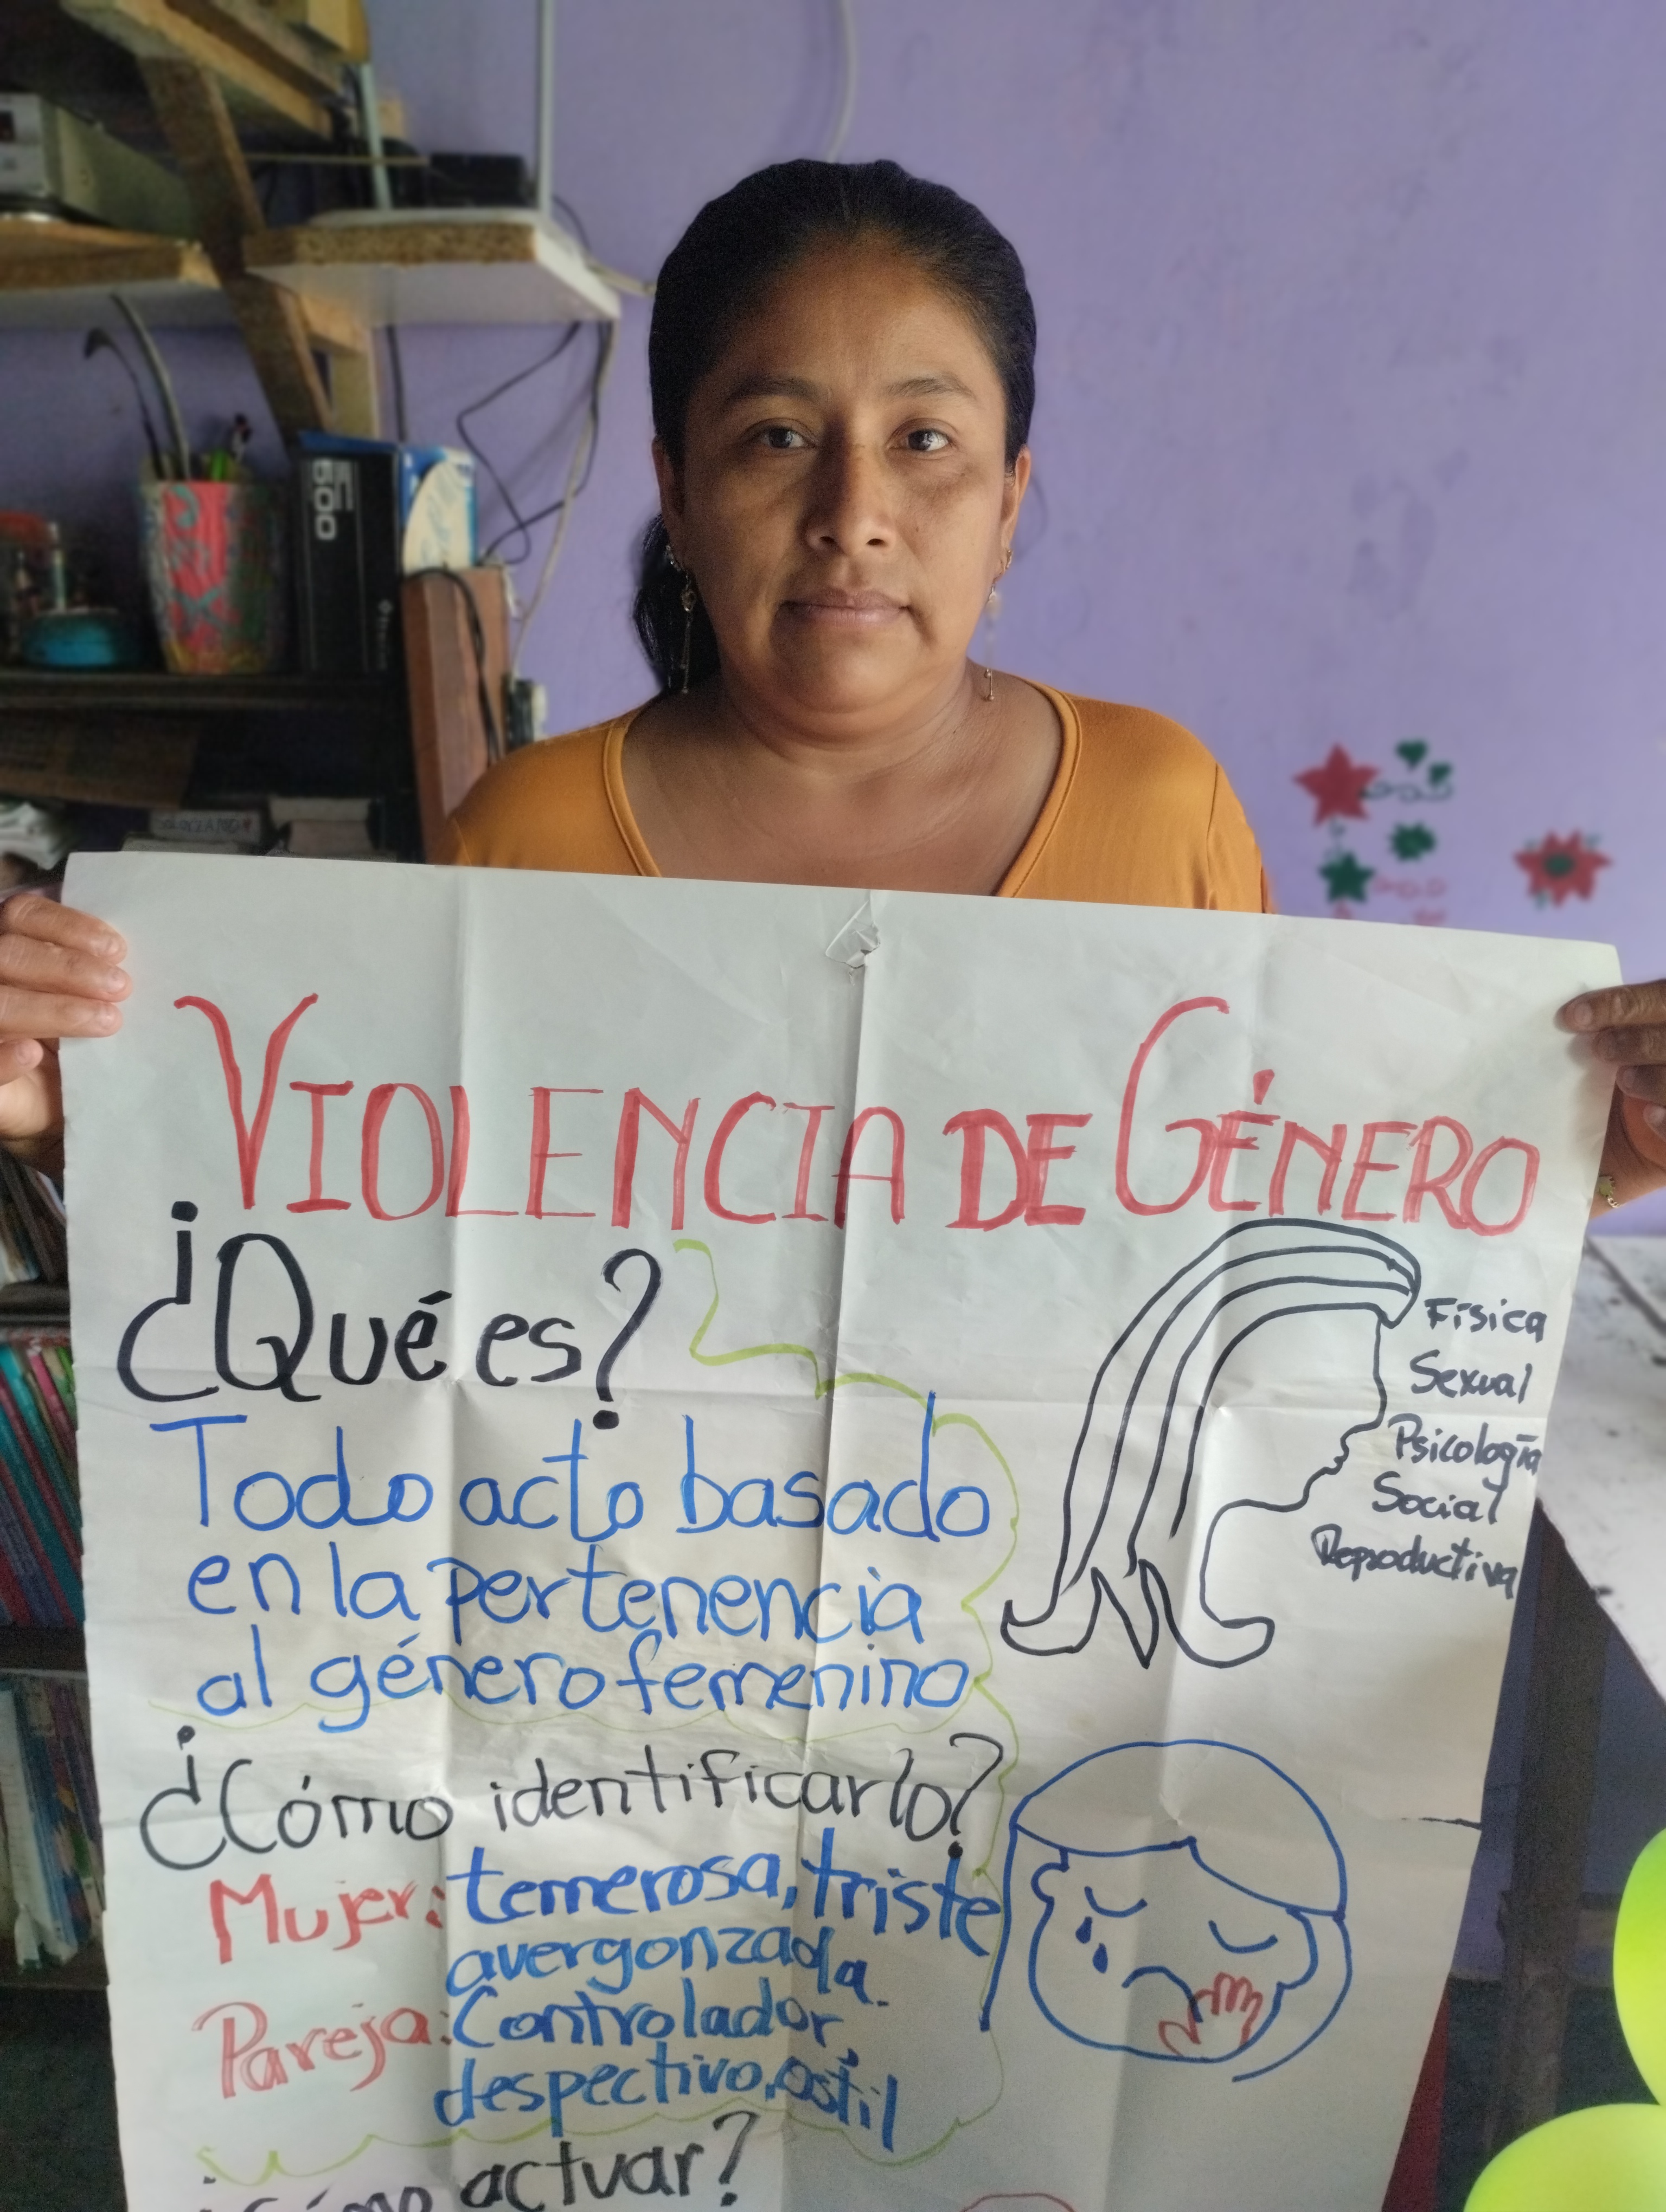 VIOLENCIA DE GÉNERO
¿Qué es?
Todo acto basado
en la pertenencia
al género femenino
Física
Sexual
Psicología
Social
Reproductiva
¿Cómo identificarlo?
Mujer: temerosa, triste
avergonzada.
Pareja: Controlador,
despectivo, ostil
¿Cómo actuar?
600